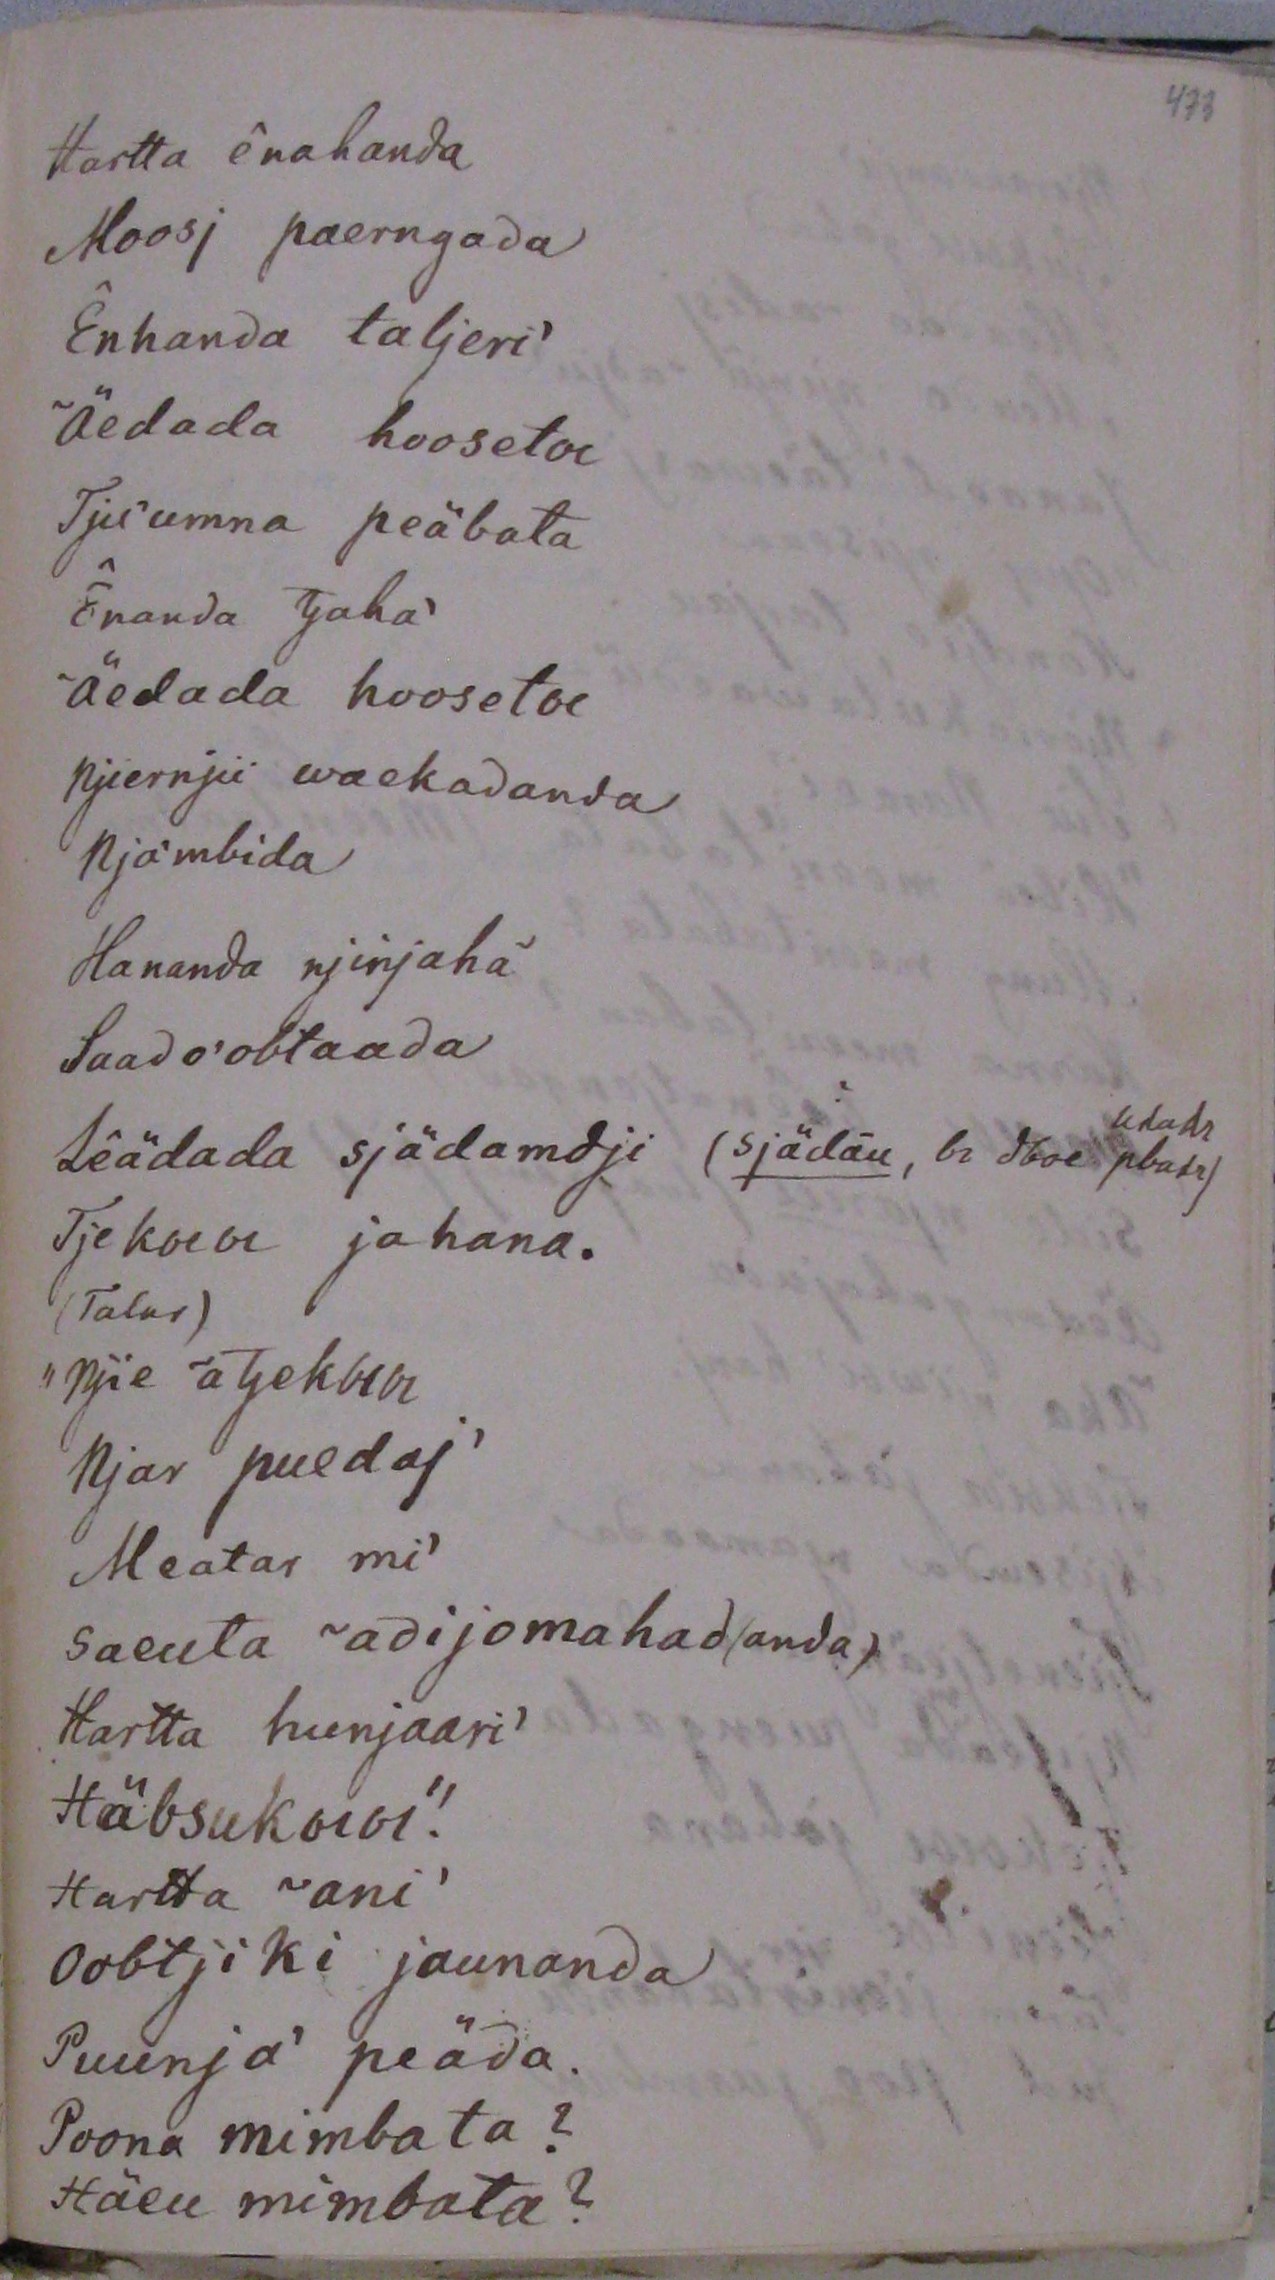 473
Hartta ênahanda
Moosj paerngada
Ênhanda taljeri'
~äedada hoosetoe
Tju'umna peäbata
Ênanda tjaha'
~äedada hoosetoe
njiernjii waekadanda
Njo'mbida
Hananda njinjaha'
Saado'obtaada
Lêädada sjädamdji (sjädāu,
Tjekoeoe jahana.
(Talur)
"Njie ~atjekoeoe
Njar puedaj'
Meatar mi'
saeuta ~adijomahad(anda)
Hartta hunjaari'
Häbsukoeoe"!
Hartta ~ani'
Oobtjiki jaunanda
Puunja' peäda.
Poona mimbata?
Häeu mimbata?